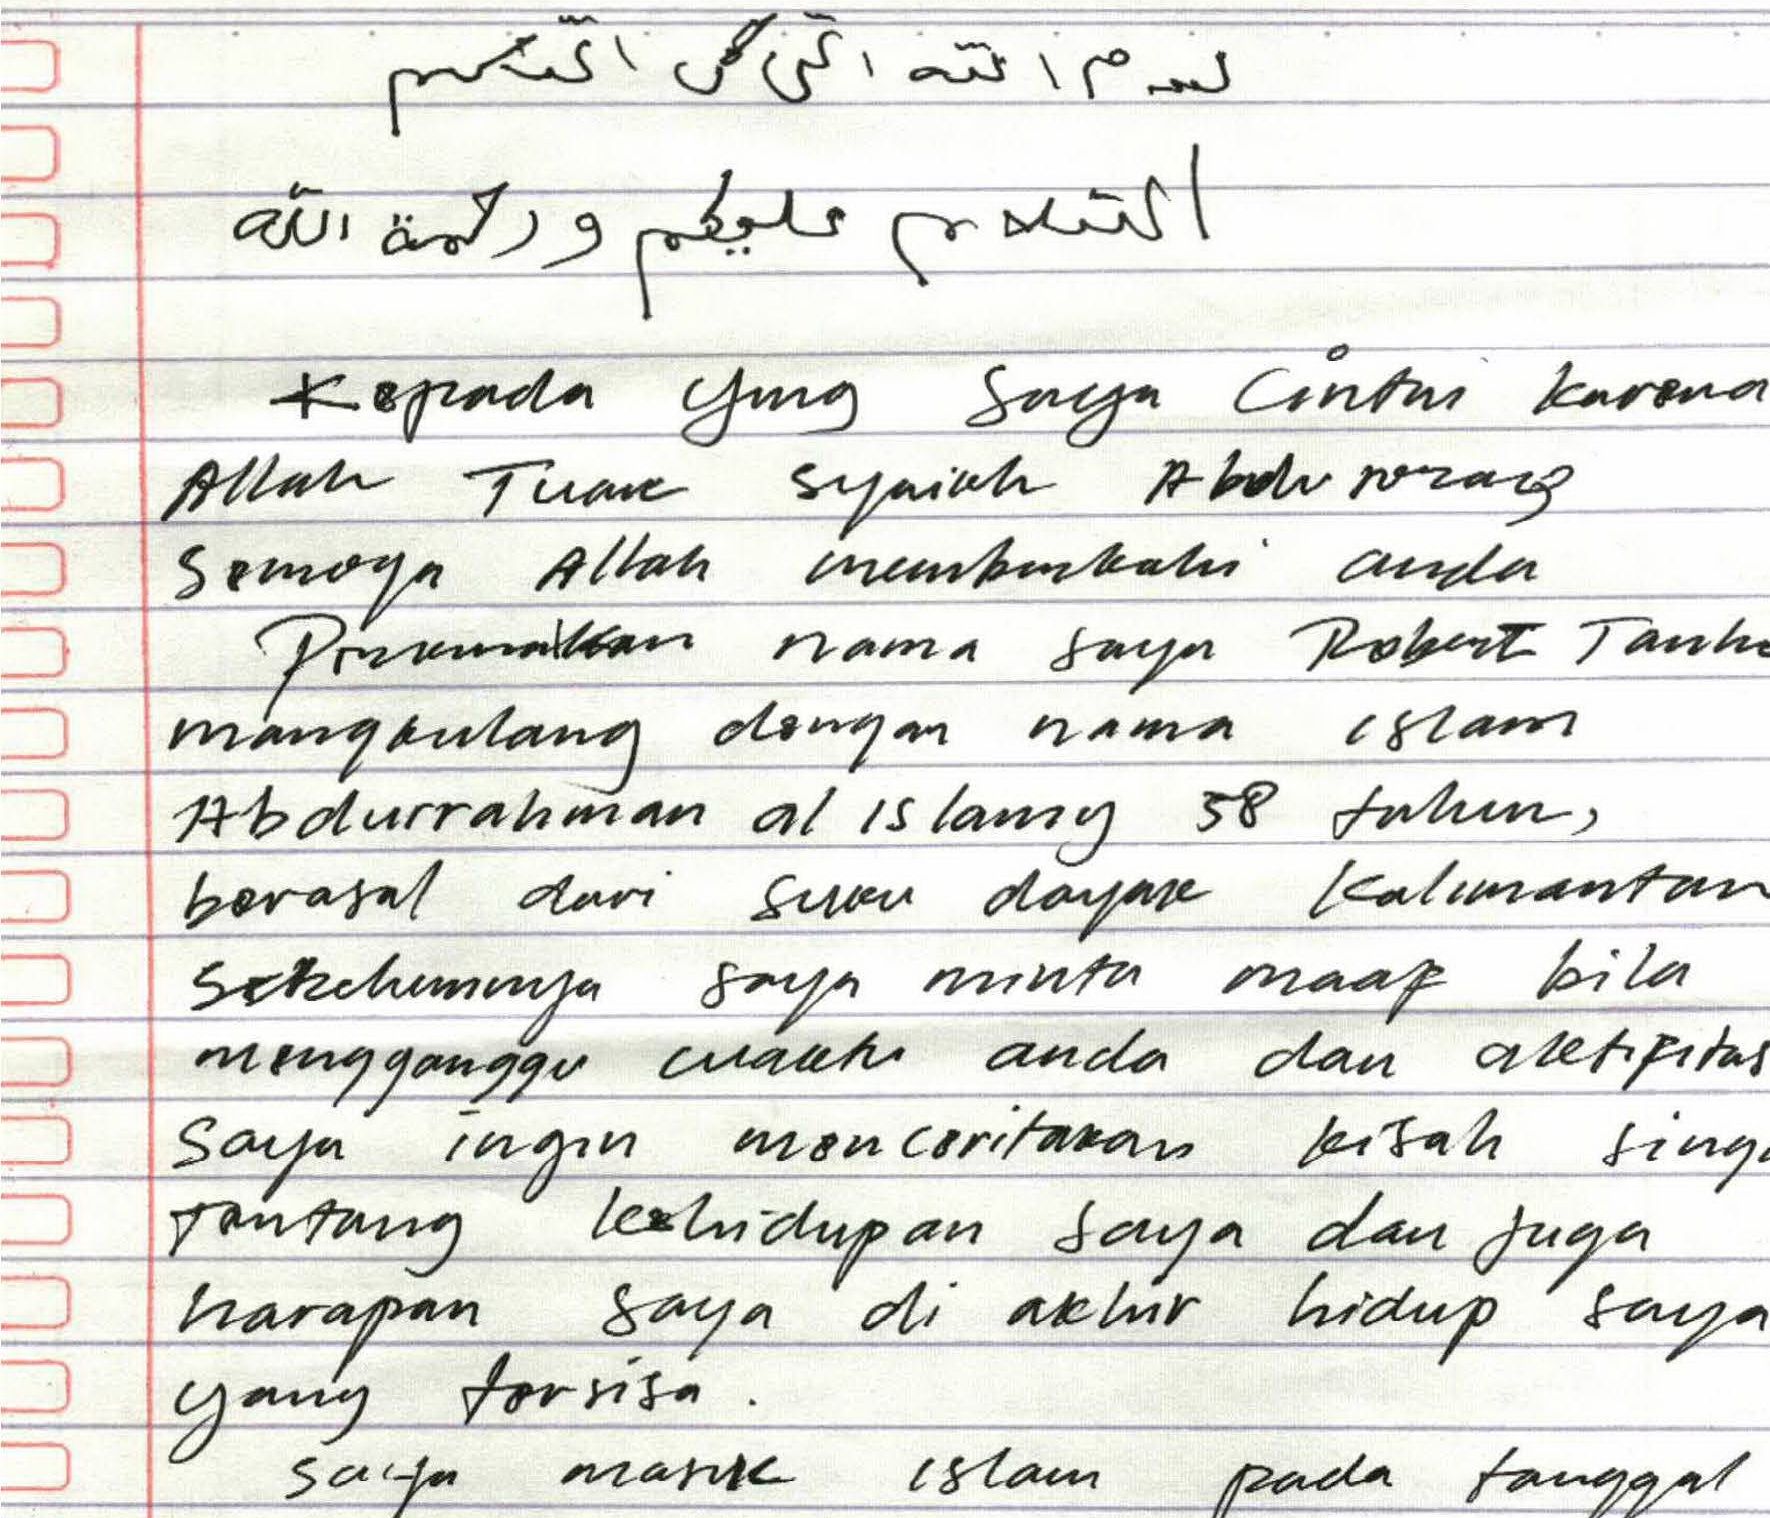 بسم الله الرحمن الرحيم
السلام عليكم ورحمة الله
Kepada yang saya Cintai karena
Allah Tuan syaikh Abdurrozaq
Semoga Allah memberkahi anda
Perkenalkan nama saya Robert Tanhe
mangkulang dengan nama islam
Abdurrahman al islamy 58 tahun,
berasal dari suku dayak Kalimantan
Sebelumnya saya minta maaf bila
mengganggu waktu anda dan aktifitas
Saya ingin menceritakan kisah singk
tentang kehidupan saya dan juga
harapan saya di akhir hidup saya
yang tersisa.
saya masuk islam pada tanggal